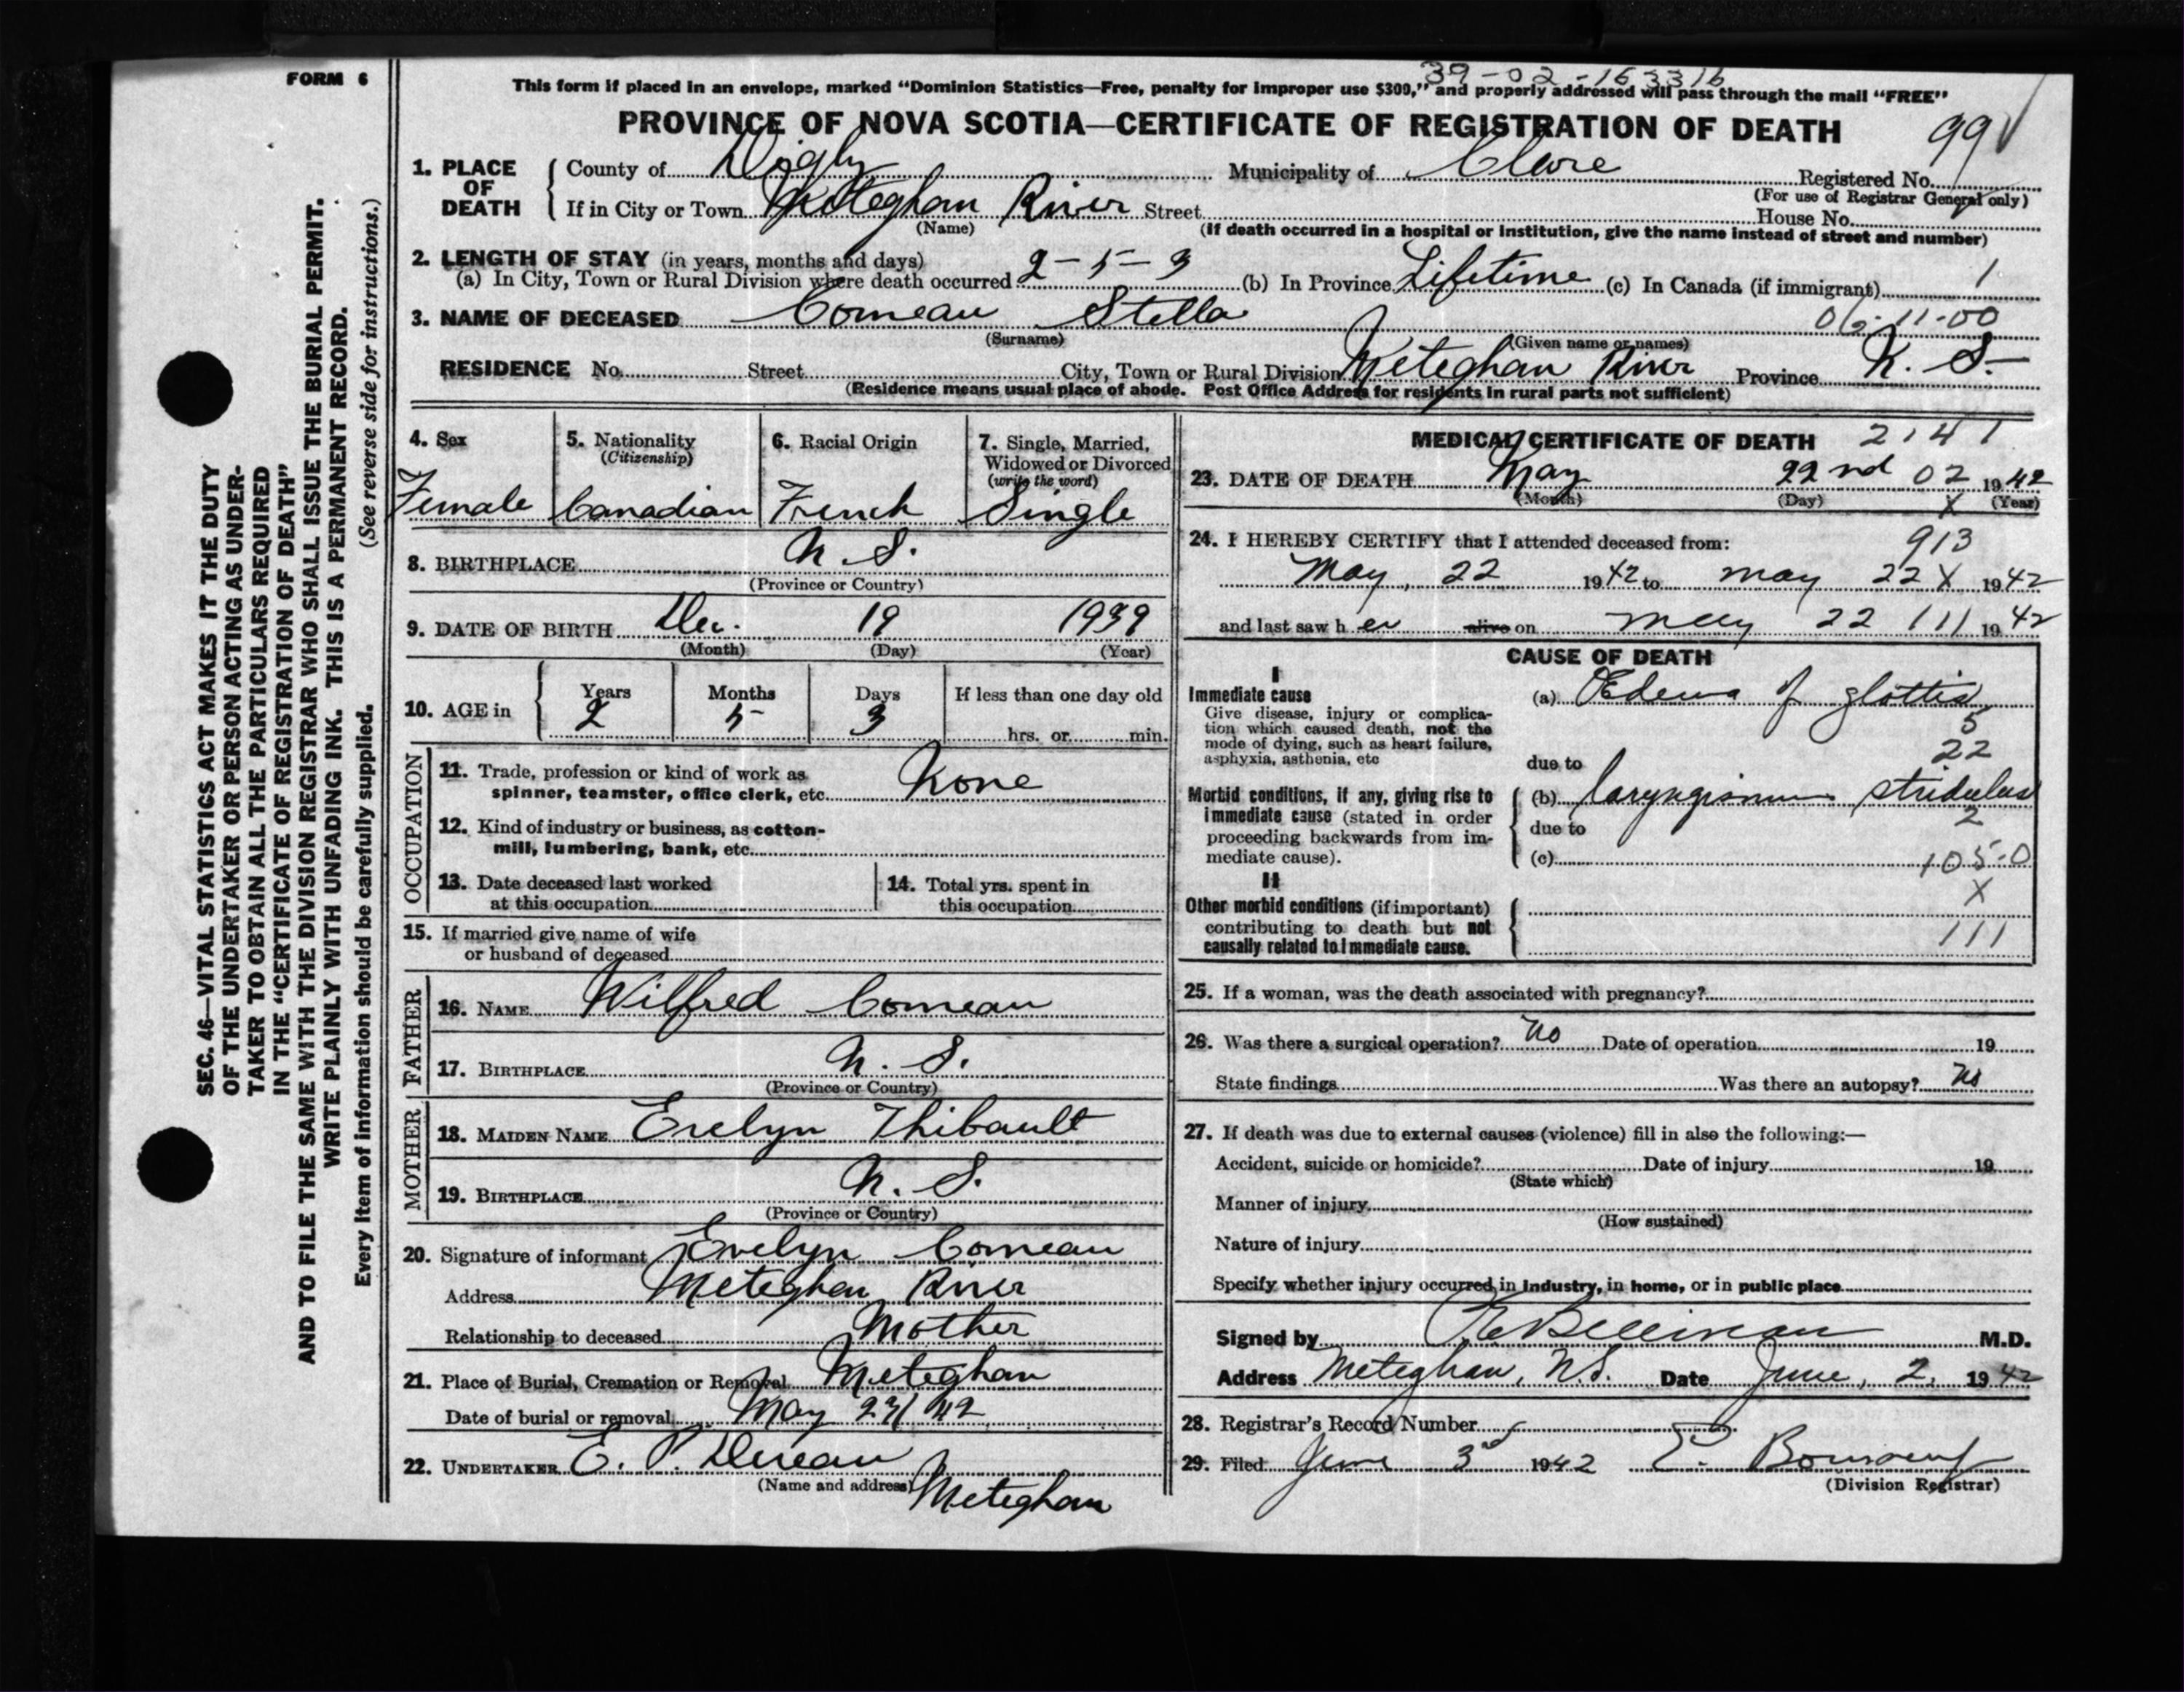 FORM 6
39-02-163316
This form if placed in an envelope, marked “Dominion Statistics—Free, penalty for improper use $300,” and properly addressed will pass through the mail “FREE”
PROVINCE OF NOVA SCOTIA—CERTIFICATE OF REGISTRATION OF DEATH 99
1. PLACE OF DEATH
County of Digby Municipality of Clare Registered No.
(For use of Registrar General only)
If in City or Town Meteghan River Street House No.
(Name) (If death occurred in a hospital or institution, give the name instead of street and number)
2. LENGTH OF STAY (in years, months and days)
(a) In City, Town or Rural Division where death occurred 2-5-3 (b) In Province Lifetime (c) In Canada (if immigrant) 1
3. NAME OF DECEASED Comeau Stella
(Surname) (Given name or names)
RESIDENCE No. Street City, Town or Rural Division Meteghan River Province N. S.
(Residence means usual place of abode. Post Office Address for residents in rural parts not sufficient)
4. Sex
Female
5. Nationality
(Citizenship)
Canadian
6. Racial Origin
French
7. Single, Married,
Widowed or Divorced
(write the word)
Single
8. BIRTHPLACE N. S.
(Province or Country)
9. DATE OF BIRTH Dec. 19 1939
(Month) (Day) (Year)
10. AGE in
Years Months Days If less than one day old
2 5 3
hrs. or min.
OCCUPATION
11. Trade, profession or kind of work as
spinner, teamster, office clerk, etc. None
12. Kind of industry or business, as cotton-
mill, lumbering, bank, etc.
13. Date deceased last worked
at this occupation
14. Total yrs. spent in
this occupation
15. If married give name of wife
or husband of deceased
FATHER
16. NAME Wilfred Comeau
17. BIRTHPLACE N. S.
(Province or Country)
MOTHER
18. MAIDEN NAME Evelyn Thibault
19. BIRTHPLACE N. S.
(Province or Country)
20. Signature of informant Evelyn Comeau
Address Meteghan River
Relationship to deceased Mother
21. Place of Burial, Cremation or Removal Meteghan
Date of burial or removal May 23/42
22. UNDERTAKER E. P.
(Name and address) Meteghan
MEDICAL CERTIFICATE OF DEATH 2141
23. DATE OF DEATH May 22nd 02 1942
(Month) (Day) X (Year)
24. I HEREBY CERTIFY that I attended deceased from: 913
May, 22 1942 to may 22 X 1942
and last saw h er alive on May 22 111 1942
CAUSE OF DEATH
I
Immediate cause
Give disease, injury or complica-
tion which caused death, not the
mode of dying, such as heart failure,
asphyxia, asthenia, etc
(a) Œdema of glottis
5
22
due to
Morbid conditions, if any, giving rise to
immediate cause (stated in order
proceeding backwards from im-
mediate cause).
(b) laryngismus stridulus
2
due to
(c) 105-0
X
II
Other morbid conditions (if important)
contributing to death but not
causally related to immediate cause.
111
25. If a woman, was the death associated with pregnancy?
26. Was there a surgical operation? No Date of operation 19
State findings Was there an autopsy? No
27. If death was due to external causes (violence) fill in also the following:—
Accident, suicide or homicide? Date of injury 19
(State which)
Manner of injury
(How sustained)
Nature of injury
Specify whether injury occurred in industry, in home, or in public place
Signed by M.D.
Address Meteghan, N.S. Date June, 2, 1942
28. Registrar's Record Number
29. Filed June 3rd 1942 E.
(Division Registrar)
SEC. 46—VITAL STATISTICS ACT MAKES IT THE DUTY
OF THE UNDERTAKER OR PERSON ACTING AS UNDER-
TAKER TO OBTAIN ALL THE PARTICULARS REQUIRED
IN THE “CERTIFICATE OF REGISTRATION OF DEATH”
AND TO FILE THE SAME WITH THE DIVISION REGISTRAR WHO SHALL ISSUE THE BURIAL PERMIT.
WRITE PLAINLY WITH UNFADING INK. THIS IS A PERMANENT RECORD.
Every item of information should be carefully supplied. (See reverse side for instructions.)